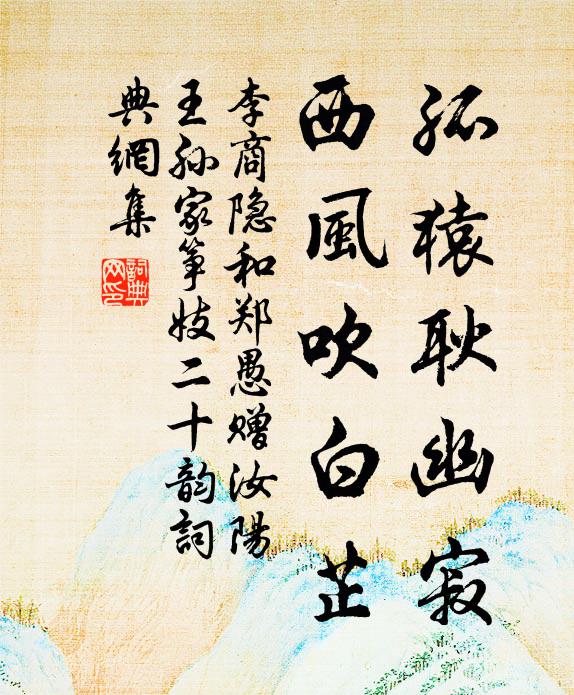 孤猿耿幽寂
西風吹白芷
李商隐和郑愚赠汝陽
王孙家筝妓二十韵詞
典網集
詞典
网印